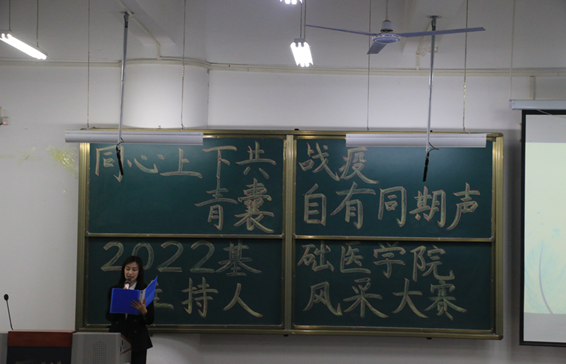 同心上下共战疫
青囊自有同期声
2022基础医学院
主持人风采大赛